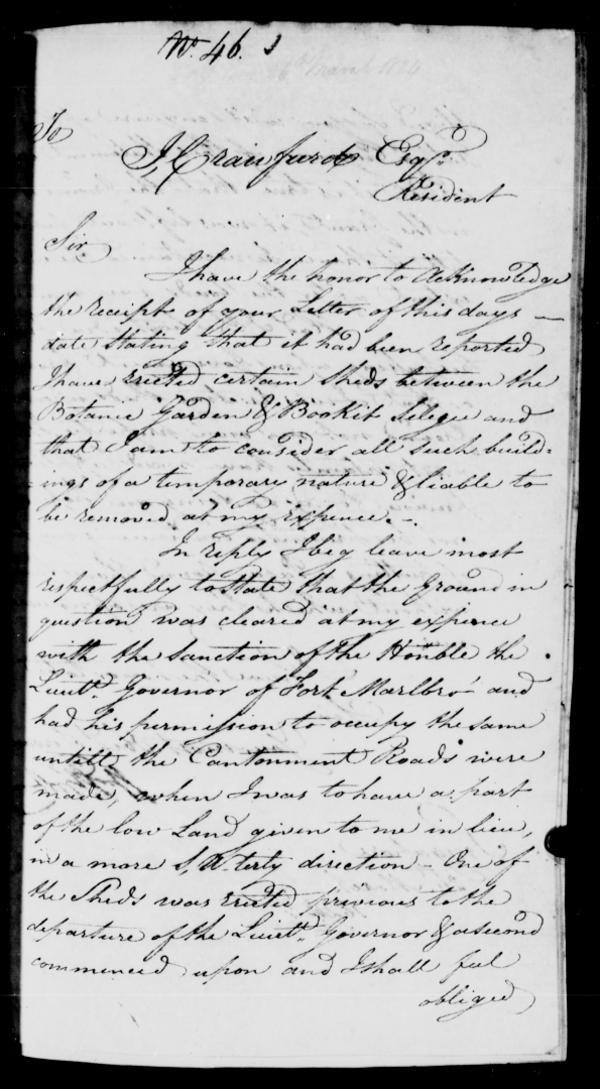 No. 46.
To
J, Crawfurd Esqr.
Resident
Sir,
I have the honor to acknowledge
the receipt of your Letter of this days —
date stating that it had been reported
I have erected certain Sheds between the
Botanic Garden & Bookit Selegie and
that I am to consider all such build-
ings of a temporary nature & liable to
be removed at my expence. —
In reply I beg leave most
respectfully to state that the Ground in
question was cleared at my expence
with the sanction of the Honble the
Lieutt. Governor of Fort Marlbro' and
had his permission to occupy the same
untill the Cantonment Roads were
made, when I was to have a part
of the low Land given to me in lieu,
in a more S, Wterly direction — One of
the Sheds was erected previous to the
departure of the Lieutt. Governor & a second
commenced upon and I shall feel
obliged